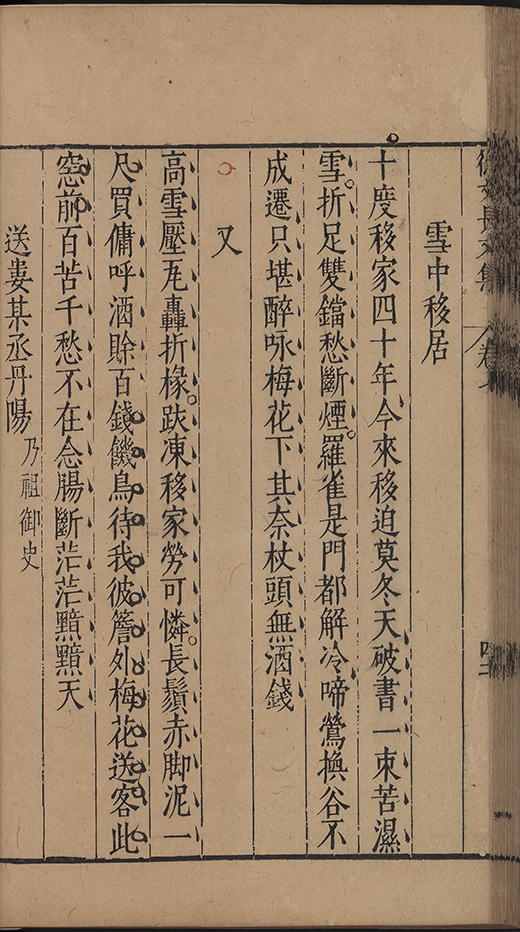 徐文長文集 卷七 四二
雪中移居
十度移家四十年今來移迫莫冬天破書一束苦濕
雪折足雙鐺愁斷煙羅雀是門都解冷啼鶯換谷不
成遷只堪醉咏梅花下其奈杖頭無酒錢
又
高雪壓瓦轟折椽趺凍移家勞可憐長鬚赤脚泥一
尺買傭呼酒賒百錢饑鳥待我彼簷外梅花送客此
窓前百苦千愁不在念腸斷茫茫黯黯天
送婁某丞丹陽 乃祖御史